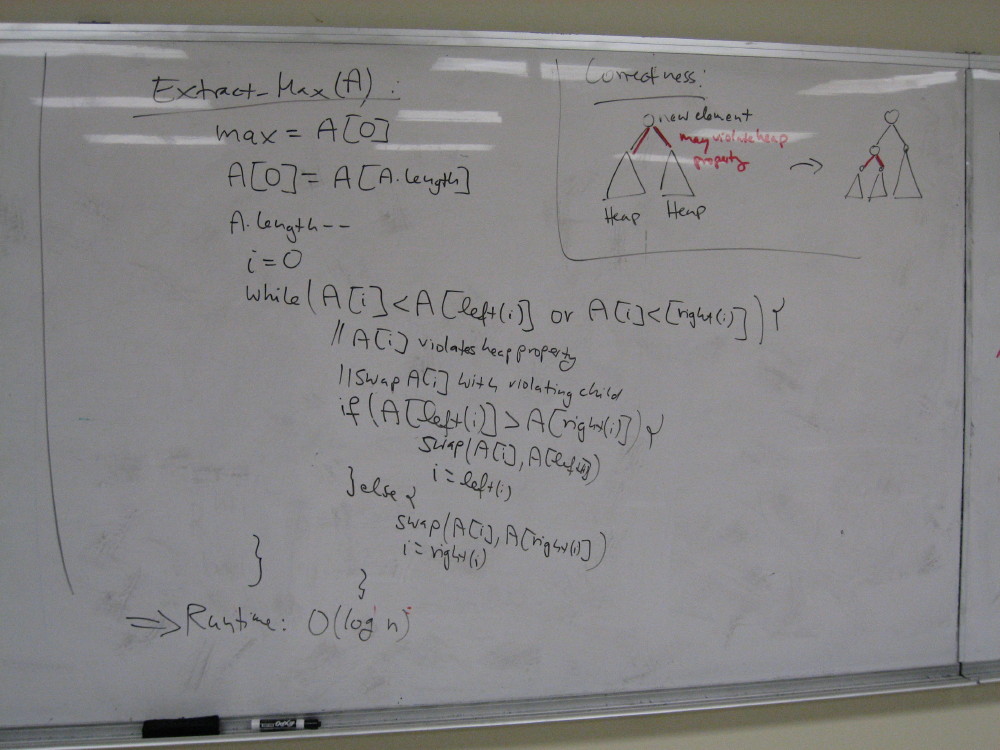 Extract-Max(A):
max = A[0]
A[0] = A[A.length]
A.length--
i = 0
while(A[i]<A[left(i)] or A[i]<[right(i)]){
//A[i] violates heap property
//swap A[i] with violating child
if(A[left(i)]>A[right(i)]){
swap(A[i], A[left(i)])
i = left(i)
}else{
swap(A[i], A[right(i)])
i = right(i)
}
}
=> Runtime: O(log n)
Correctness:
new element
may violate heap
property
Heap Heap